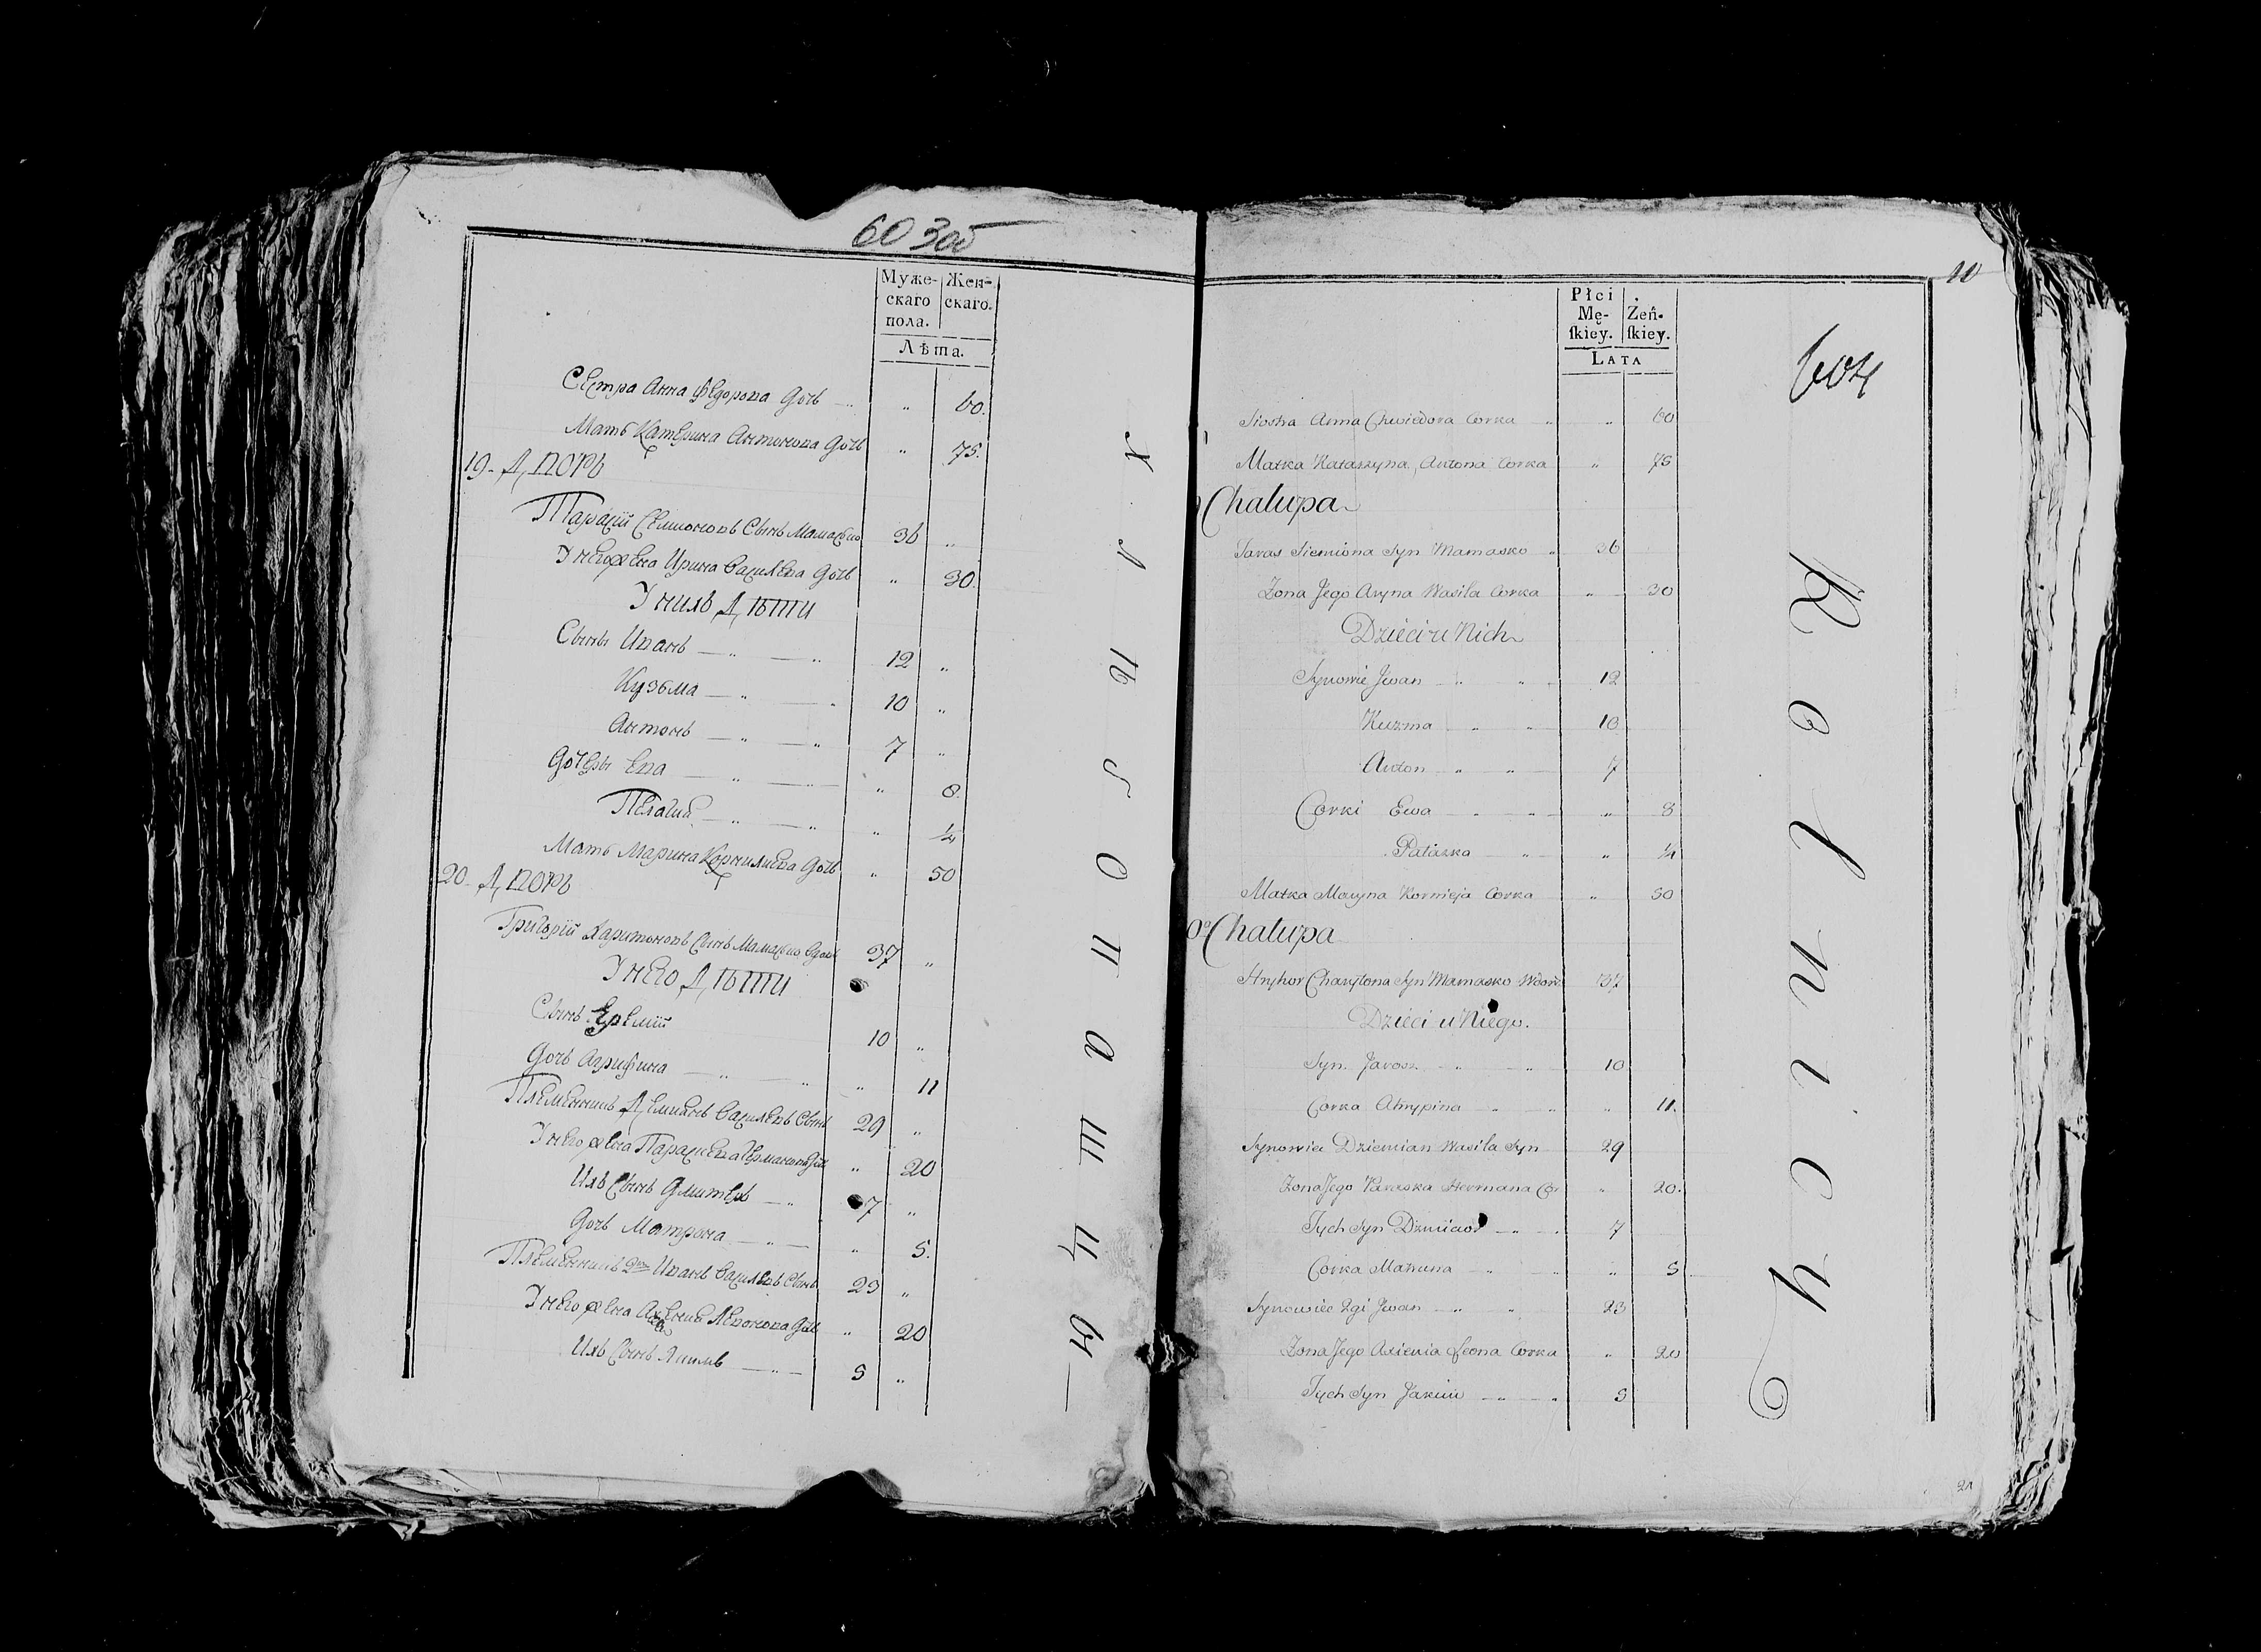 60 3об
Муже-
скаго
пола.
Жен-
скаго.
Лѣта.
Сестра Анна Федорова дочь — „ 60.
Мать Катерина Антонова дочь „ 75.
19. Дворъ
Тарасій Семионовъ Сынъ Мамасько 36 „
У него жена Ирина Василева дочь „ 30.
У нихъ Дѣти
Сыны Иванъ — „ — „ 12 „
Кузьма — „ — „ 10 „
Антонъ — „ — „ 7 „
Дочери Ева — „ — „ 8.
Пелагия — „ — „ „ ¼
Мать Марина Корнилиева дочь „ 50
20. Дворъ
Григорій Харитоновъ Сынъ Мамасько вдовъ 37 „
У него Дѣти
Сынъ Еремій 10 „
Дочь Агрифина — „ — „ „ 11
Племенникъ Демиянъ Василевъ Сынъ 29 „
У него жена Парасцева Германова дочь „ 20
Ихъ Сынъ Дмитеръ — „ 7 „
Дочь Матрона — „ — „ 5.
Племенникъ 2й Иванъ Василевъ Сынъ 23 „
У него жена Аксения Левонова дочь „ 20
Ихъ Сынъ Якимъ — „ — 5 „
Хлѣбопашцы
10
604
Płci
Mę-
ſkiey.
Żeń-
ſkiey.
LATA
Siostra Anna Chwiedora Corka „ „ 60
Matka Katarzyna Antona Corka „ 75
Chalupa
Taras Siemiona Syn Mamasko „ 36
Zona Jego Aryna Wasila Corka „ 30
Dzieci u Nich
Synowie Jwan — „ „ 12
Kuzma — „ „ 10
Anton „ „ 7
Corki Ewa — „ „ „ 8
Pałaszka „ „ ¼
Matka Maryna Kornieja Corka „ 50
0 Chalupa
Hryhor Charytona Syn Mamasko Wdow. 37
Dzieci u Niego.
Syn Jarosz — „ „ 10
Corka Ahrypina — „ „ „ 11.
Synowiec Dziemian Wasila Syn 29
Zona Jego Paraska Hermana Cor „ 20.
Tych Syn Dzmitor „ „ 7
Corka Matruna — „ „ „ 5
Synowiec 2gi Jwan — „ „ 23
Zona Jego Axienia Leona Corka „ 20
Tych Syn Jakim — „ „ 5
Rolnicy